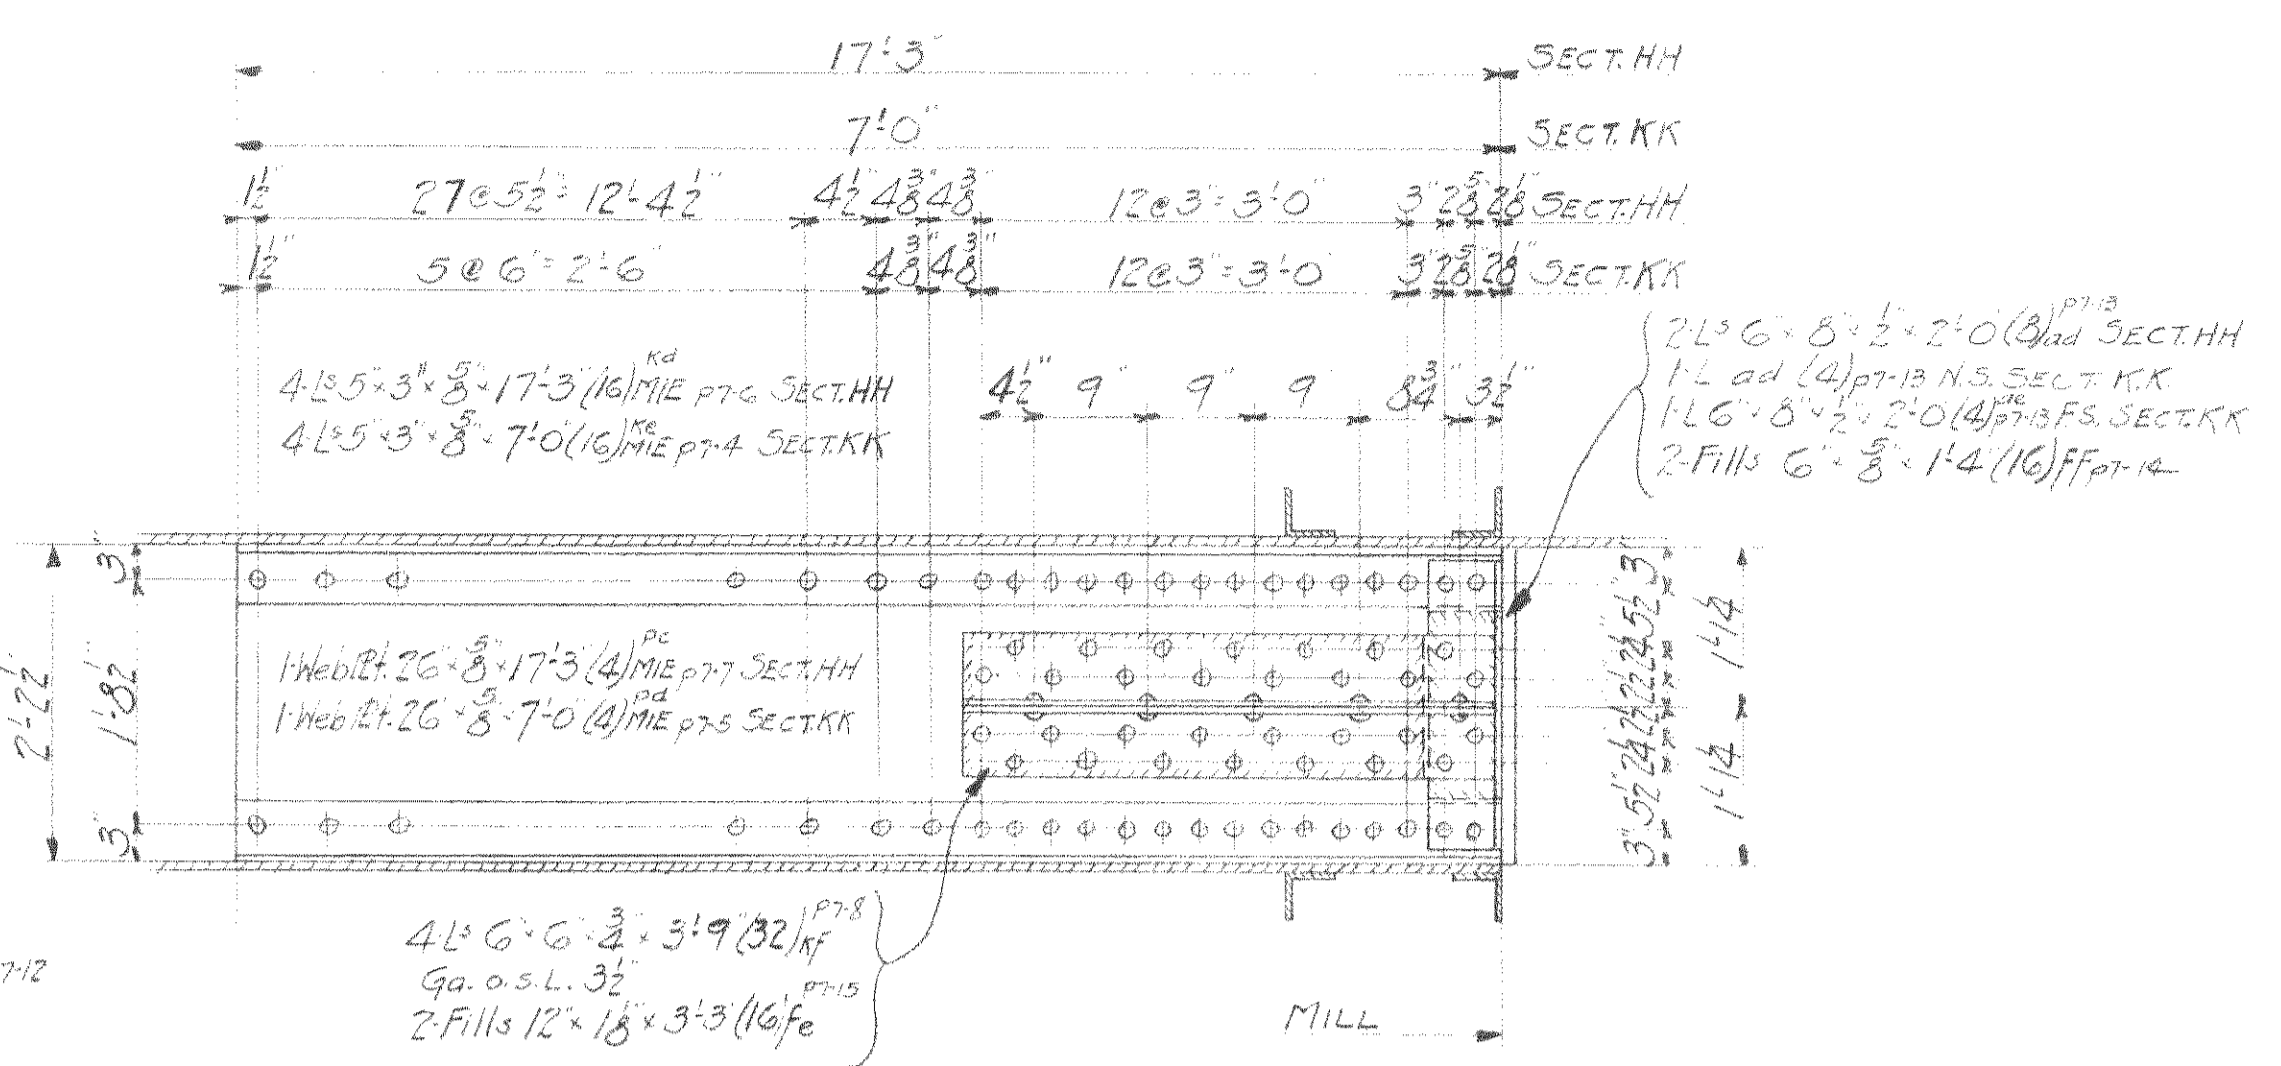 17'-3" SECT. HH
7'-0" SECT. KK
1½" 27@5½"=12'-4½" 4½" 4⅜" 4⅜" 12@3"=3'-0" 3" 2⅝" 2⅛" SECT. HH
1½" 5@6"=2'-6" 4⅜" 4⅜" 12@3"=3'-0" 3" 2⅝" 2⅛" SECT. KK
4½" 9" 9" 9" 8¾" 3½"
4-Ls 5"×3"×⅝"×17'-3"(16) kd MIE p7-6 SECT. HH
4-Ls 5"×3"×⅝"×7'-0"(16) ke MIE p7-4 SECT. KK
2-Ls 6"×8"×½"×2'-0"(8) ad p7-13 SECT. HH
1-L ad (4) p7-13 N.S. SECT. K.K.
1-L 6"×8"×½"×2'-0"(4) ae p7-13 F.S. SECT. KK
2-Fills 6"×⅝"×1'-4"(16) ff p7-14
2'-2½"
3" 1'-8½" 3"
1-Web Pt. 26"×⅝"×17'-3"(4) pc MIE p7-7 SECT. HH
1-Web Pt. 26"×⅝"×7'-0"(4) pd MIE p7-5 SECT. KK
3" 5½" 2¼" 2½" 2½" 2¼" 5½" 3"
1'-1¼" 1'-1¼"
4-Ls 6"×6"×¾"×3'-9"(32) kf p7-8
Ga. o.s.L. 3½"
2-Fills 12"×1⅛"×3'-3"(16) fe p7-15
7-12
MILL